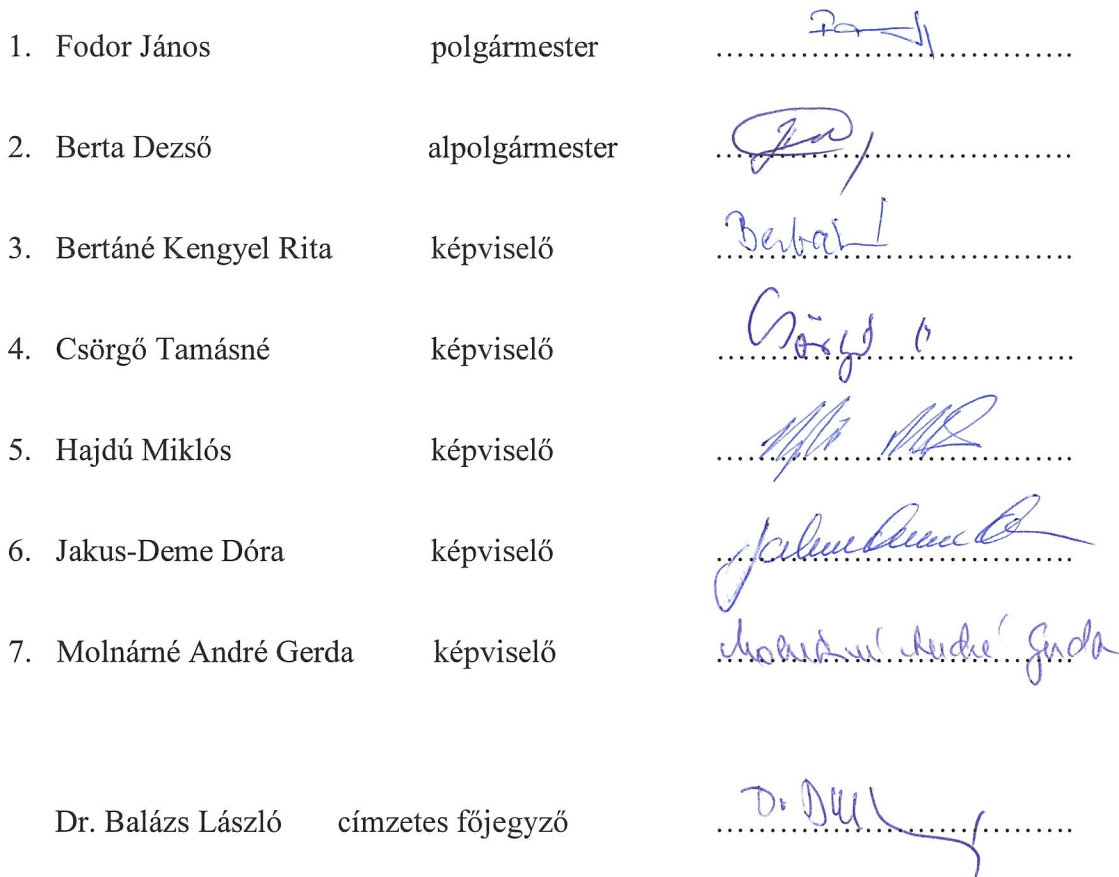 1. Fodor János polgármester ....................................
2. Berta Dezső alpolgármester ....................................
3. Bertáné Kengyel Rita képviselő ....................................
4. Csörgő Tamásné képviselő Csörgő
5. Hajdú Miklós képviselő ....................................
6. Jakus-Deme Dóra képviselő ....................................
7. Molnárné André Gerda képviselő Molnárné André Gerda
Dr. Balázs László címzetes főjegyző Dr.